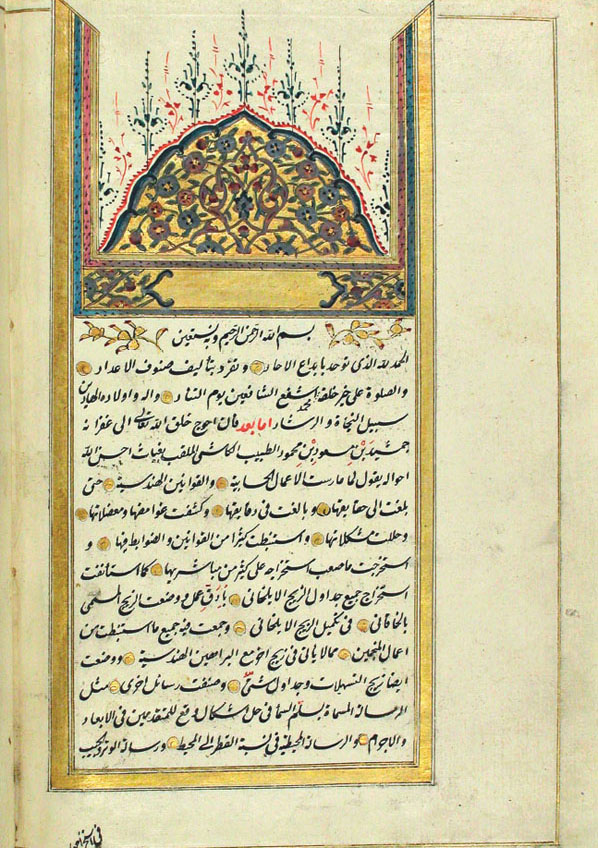 بسم الله الرحمن الرحيم وبه نستعين
الحمد لله الذى توحد بابداع الاحاد وتفرد بتاليف صنوف الاعداد
والصلوة على خير خلقه محمد اشفع الشافعين يوم التناد واله واولاده الهادين
سبيل النجاة والرشاد اما بعد فان احوج خلق الله تعالى الى غفرانه
جمشيد بن مسعود بن محمود الطبيب الكاشى الملقب بغياث احسن الله
احواله يقول لما مارست الاعمال الحسابية والقوانين الهندسية حتى
بلغت الى حقايقها وبالغت فى دقايقها وكشفت غوامضها ومعضلاتها
وحللت مشكلاتها واستنبطت كثيرا من القوانين والضوابط فيها و
استخرجت ما صعب استخراجه على كثير من مباشريها كما استانفت
استخراج جميع جداول الزيج الايلخانى بادق عمل ووضعت الزيج المسمى
بالخاقانى فى تكميل الزيج الايلخانى وجمعت فيه جميع ما استنبطت من
اعمال المنجمين مما لا ياتى فى زيج اخر مع البراهين الهندسية ووضعت
ايضا زيج التسهيلات وجداول شتى وصنفت رسائل اخرى مثل
الرسالة المسماة بسلم السما فى حل اشكال وقع للمتقدمين فى الابعاد
والاجرام والرسالة المحيطية فى نسبة القطر الى المحيط ورسالة الوتر والجيب